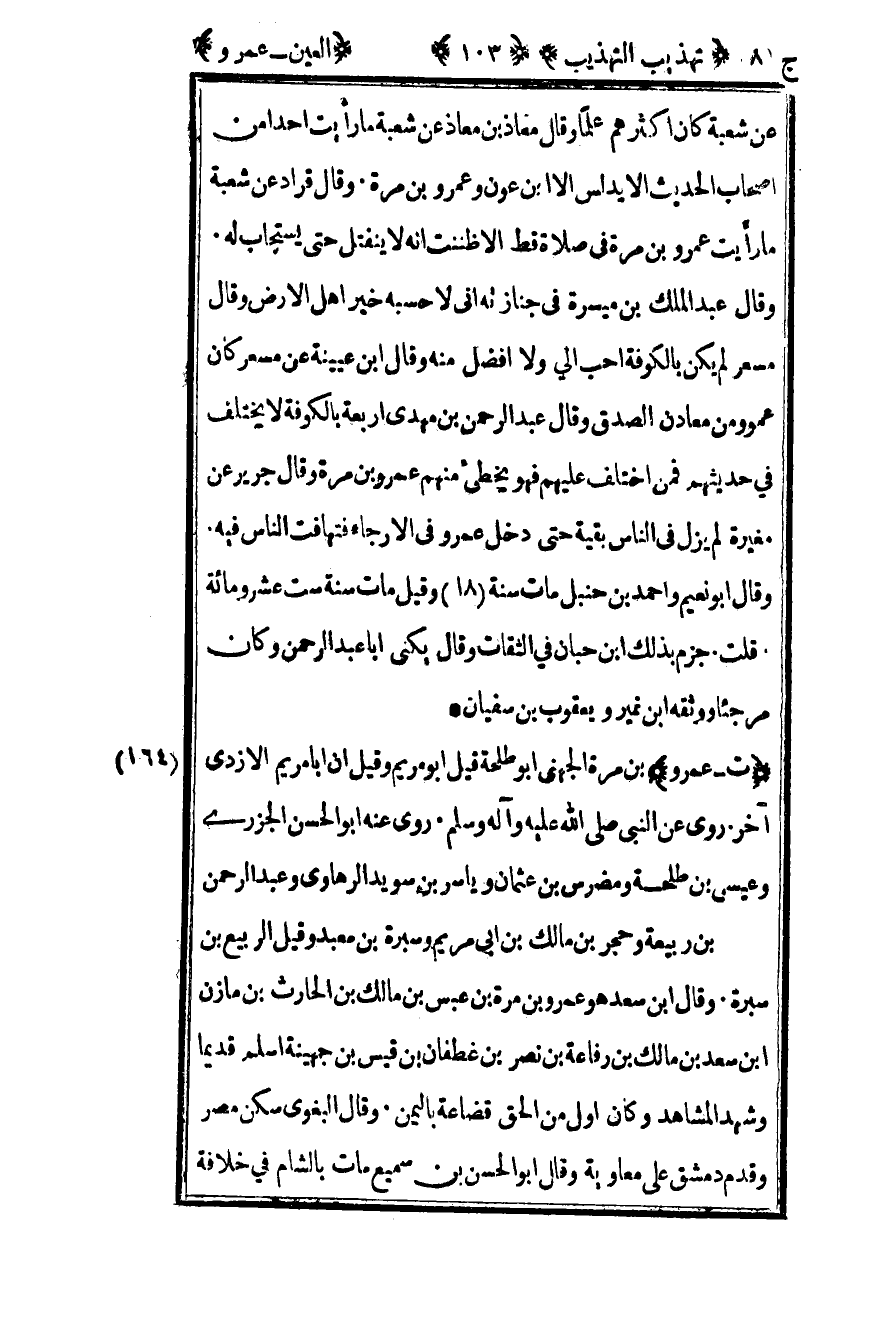 ج ٨ ﴿ تهذيب التهذيب ﴾ ﴿ ١٠٣ ﴾ ﴿ العين ـ عمرو ﴾
عن شعبة كان اكثرهم علما وقال معاذ بن معاذ عن شعبة مارأيت احدا من
اصحاب الحديث الايدلس الا ابن عون وعمرو بن مرة . وقال قراد عن شعبة
مارأيت عمرو بن مرة فى صلاة قط الاظننت انه لا ينفتل حتى يستجاب له .
وقال عبد الملك بن ميسرة فى جنازته انى لاحسبه خير اهل الارض وقال
مسعر لم يكن بالكوفة احب الي ولا افضل منه وقال ابن عيينة عن مسعر كان
عمرو من معادن الصدق وقال عبد الرحمن بن مهدى اربعة بالكوفة لا يختلف
في حديثهم فمن اختلف عليهم فهو يخطئ منهم عمرو بن مرة وقال جرير عن
مغيرة لم يزل فى الناس بقية حتى دخل عمرو فى الارجاء فتهافت الناس فيه .
وقال ابو نعيم واحمد بن حنبل مات سنة (١٨) وقيل مات سنة ست عشر ومائة
. قلت . جزم بذلك ابن حبان في الثقات وقال يكنى ابا عبد الرحمن وكان
مرجئا ووثقه ابن نمير و يعقوب بن سفيان •
﴿ ت ـ عمرو ﴾ بن مرة الجهنى ابو طلحة قيل ابو مريم وقيل ان ابا مريم الازدى (١٦٤)
آخر . روى عن النبى صلى الله عليه وآله وسلم . روى عنه ابو الحسن الجزرے
وعيسى بن طلحة ومضرس بن عثمان و ياسر بن سويد الرهاوى وعبد الرحمن
بن ربيعة وحجر بن مالك بن ابى مريم وسبرة بن معبد وقيل الربيع بن
سبرة . وقال ابن سعد هو عمرو بن مرة بن عبس بن مالك بن الحارث بن مازن
ابن سعد بن مالك بن رفاعة بن نصر بن غطفان بن قيس بن جهينة اسلم قديما
وشهد المشاهد وكان اول من الحق قضاعة باليمن . وقال البغوى سكن مصر
وقدم دمشق على معاوية وقال ابو الحسن بن سميع مات بالشام في خلافة